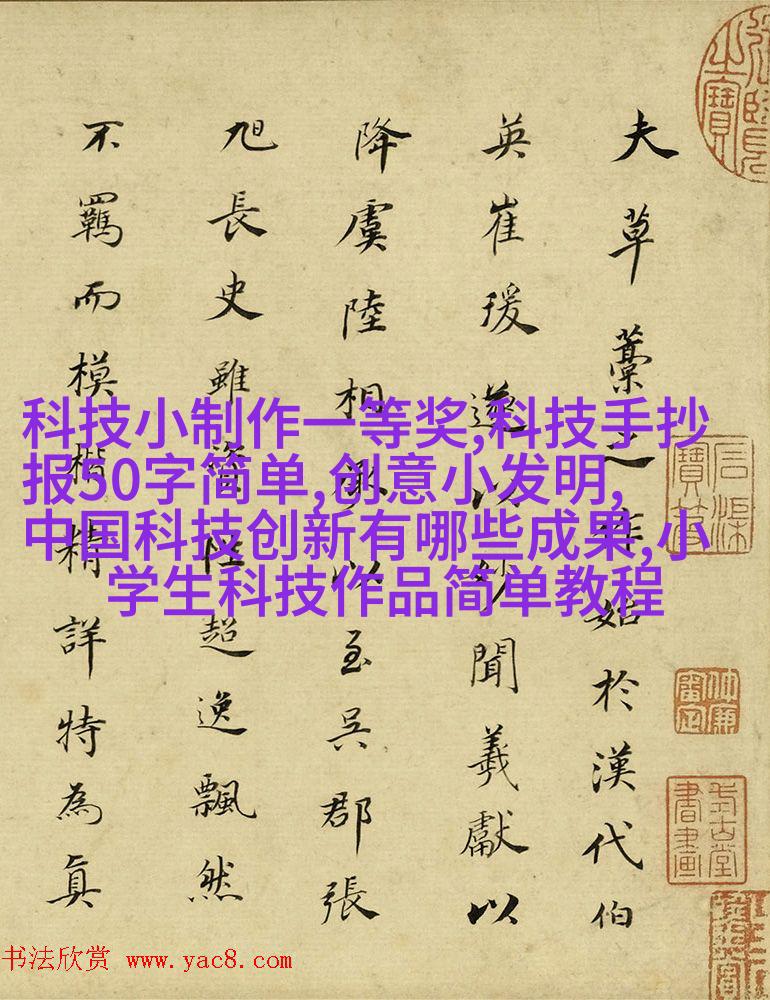 夫草藁之作始於漢代伯
英崔瑗遂以妙聞羲獻以
降虞陸相承以至吳郡張
旭長史雖姿性超逸飄然
不羈而模楷精詳特為真
科技小制作一等奖,科技手抄
报50字简单,创意小发明,
中国科技创新有哪些成果,小
学生科技作品简单教程
书法欣赏 www.yac8.com